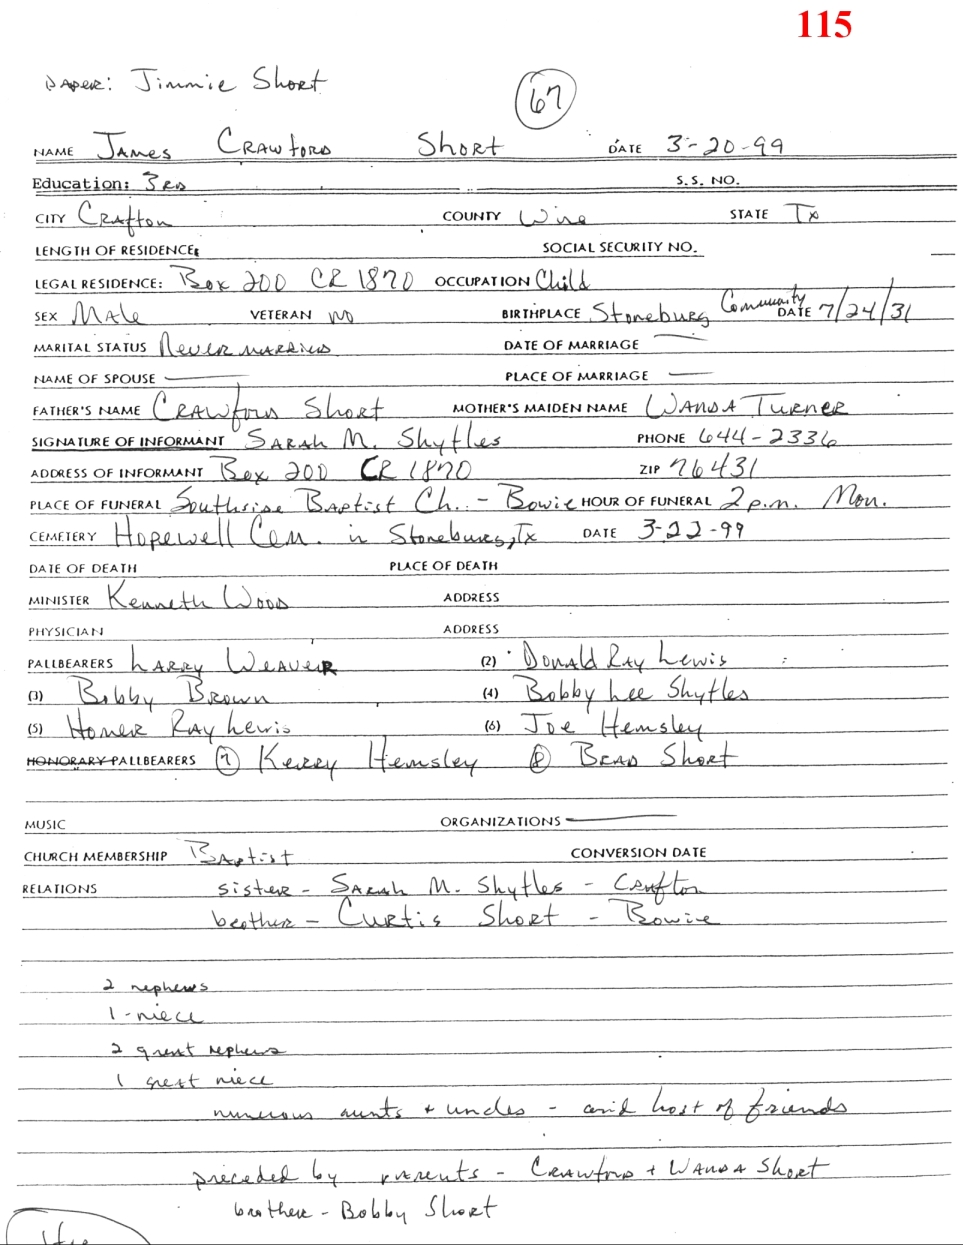 115
PAPER: Jimmie Short
67
NAME James Crawford Short DATE 3-20-99
Education: 3RD S.S. NO.
CITY Crafton COUNTY Wise STATE Tx
LENGTH OF RESIDENCE: SOCIAL SECURITY NO.
LEGAL RESIDENCE: Box 200 CR 1870 OCCUPATION Child
SEX Male VETERAN NO BIRTHPLACE Stoneburg Community DATE 7/24/31
MARITAL STATUS Never married DATE OF MARRIAGE —
NAME OF SPOUSE — PLACE OF MARRIAGE —
FATHER'S NAME Crawford Short MOTHER'S MAIDEN NAME Wanda Turner
SIGNATURE OF INFORMANT Sarah M. Shytles PHONE 644-2336
ADDRESS OF INFORMANT Box 200 CR 1870 ZIP 76431
PLACE OF FUNERAL Southside Baptist Ch. - Bowie HOUR OF FUNERAL 2 p.m. Mon.
CEMETERY Hopewell Cem. in Stoneburg, Tx DATE 3-22-99
DATE OF DEATH PLACE OF DEATH
MINISTER Kenneth Wood ADDRESS
PHYSICIAN ADDRESS
PALLBEARERS Larry Weaver (2) Donald Ray Lewis
(3) Bobby Brown (4) Bobby Lee Shytles
(5) Homer Ray Lewis (6) Joe Hemsley
HONORARY PALLBEARERS 7 Kerry Hemsley 8 Brad Short
MUSIC ORGANIZATIONS —
CHURCH MEMBERSHIP Baptist CONVERSION DATE
RELATIONS sister - Sarah M. Shytles - Crafton
brother - Curtis Short - Bowie
2 nephews
1 - niece
2 great nephews
1 great niece
numerous aunts + uncles - and host of friends
preceded by parents - Crawford + Wanda Short
brother - Bobby Short